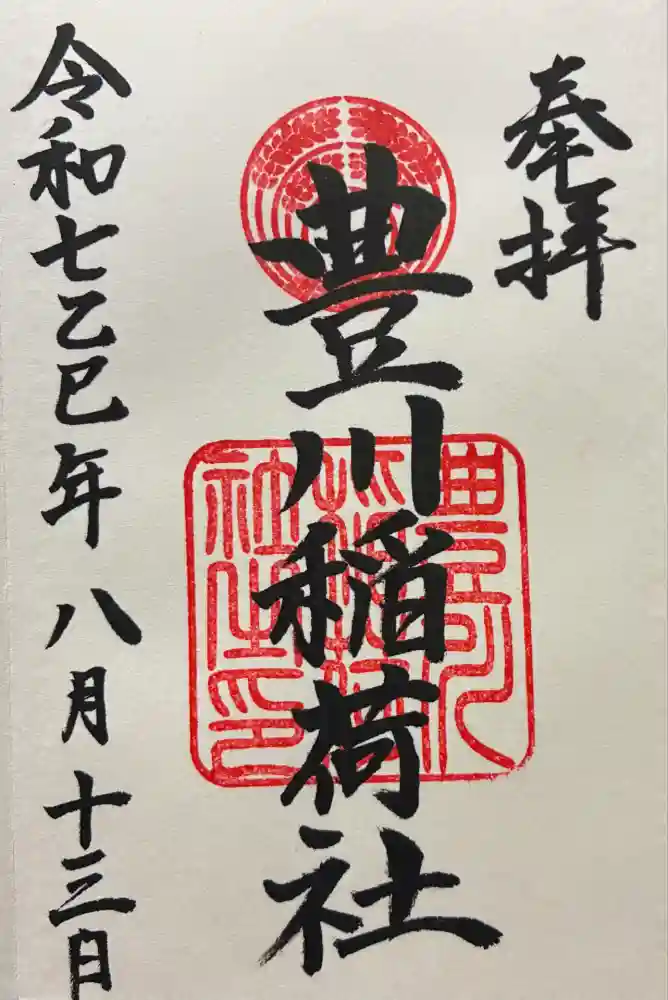 奉拝
豊川稲荷社
豊川稲荷社之印
令和七乙巳年八月十三日